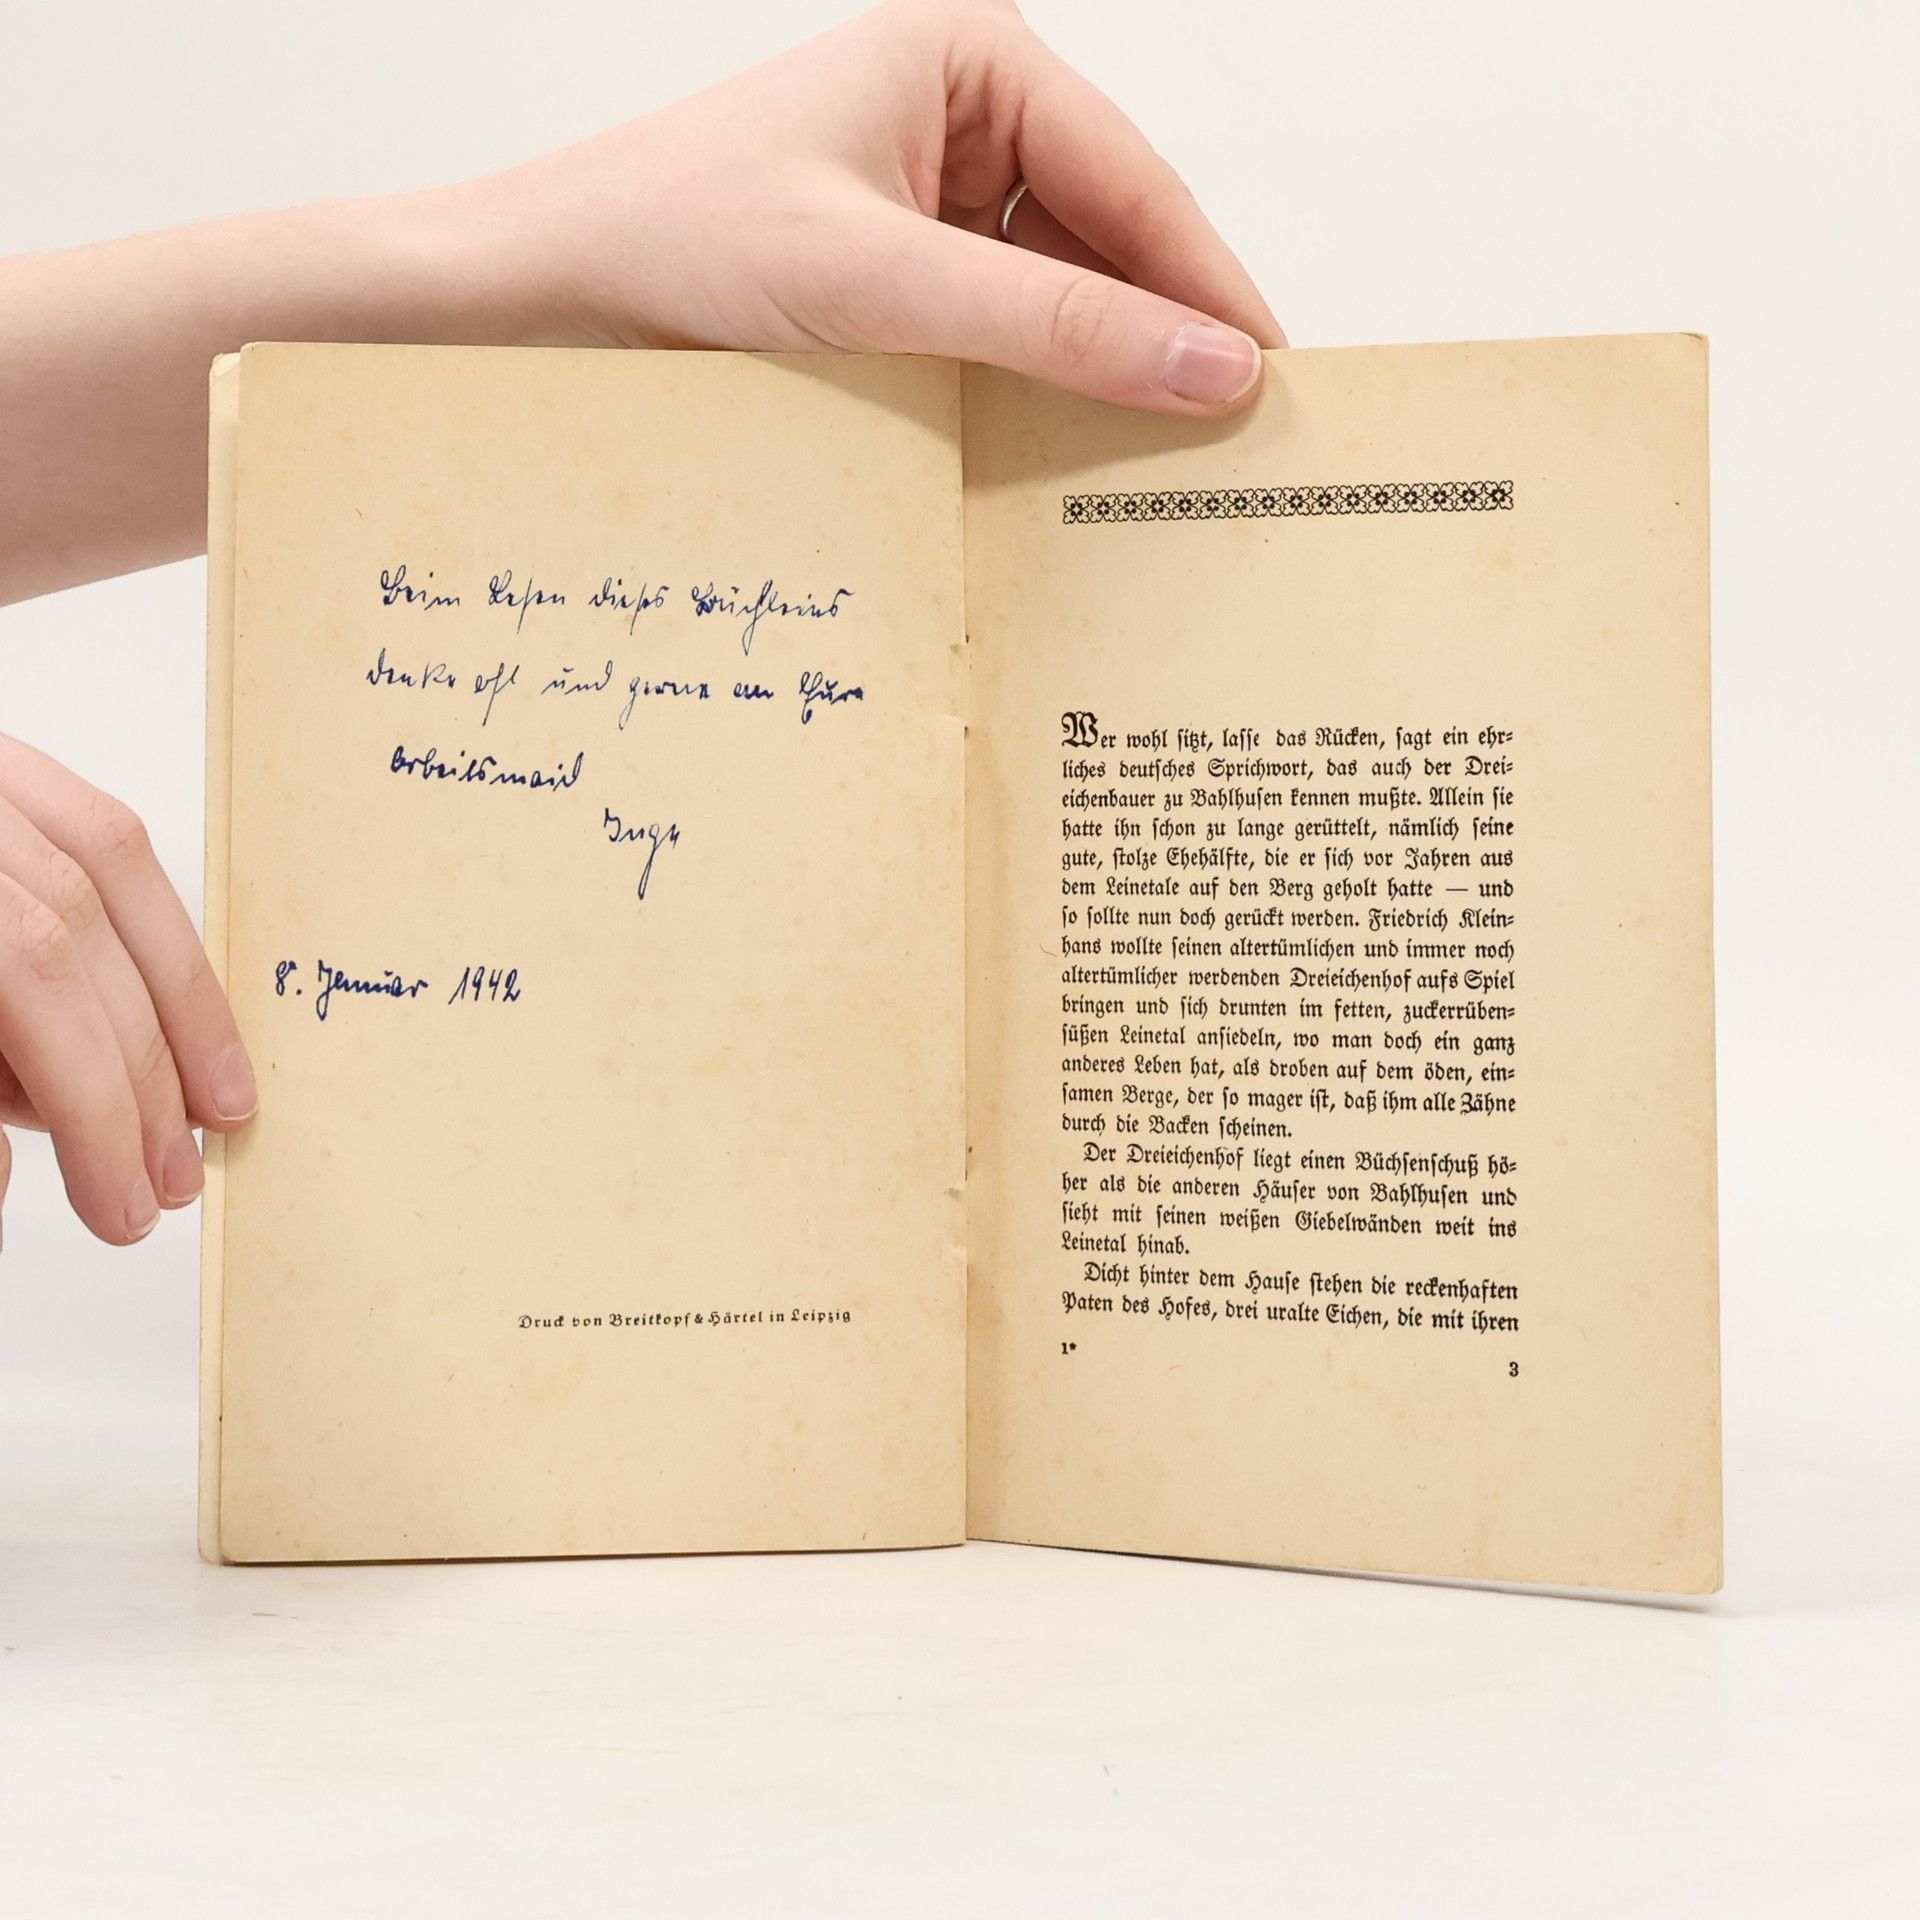 Beim Lesen dieses Büchleins
denke oft und gerne an Eure
Arbeitsmaid
Inge
8. Januar 1942
Druck von Breitkopf & Härtel in Leipzig
Wer wohl sitzt, lasse das Rücken, sagt ein ehr-
liches deutsches Sprichwort, das auch der Drei-
eichenbauer zu Bahlhusen kennen mußte. Allein sie
hatte ihn schon zu lange gerüttelt, nämlich seine
gute, stolze Ehehälfte, die er sich vor Jahren aus
dem Leinetale auf den Berg geholt hatte — und
so sollte nun doch gerückt werden. Friedrich Klein-
hans wollte seinen altertümlichen und immer noch
altertümlicher werdenden Dreieichenhof aufs Spiel
bringen und sich drunten im fetten, zuckerrüben-
süßen Leinetal ansiedeln, wo man doch ein ganz
anderes Leben hat, als droben auf dem öden, ein-
samen Berge, der so mager ist, daß ihm alle Zähne
durch die Backen scheinen.
Der Dreieichenhof liegt einen Büchsenschuß hö-
her als die anderen Häuser von Bahlhusen und
sieht mit seinen weißen Giebelwänden weit ins
Leinetal hinab.
Dicht hinter dem Hause stehen die reckenhaften
Paten des Hofes, drei uralte Eichen, die mit ihren
1*
3